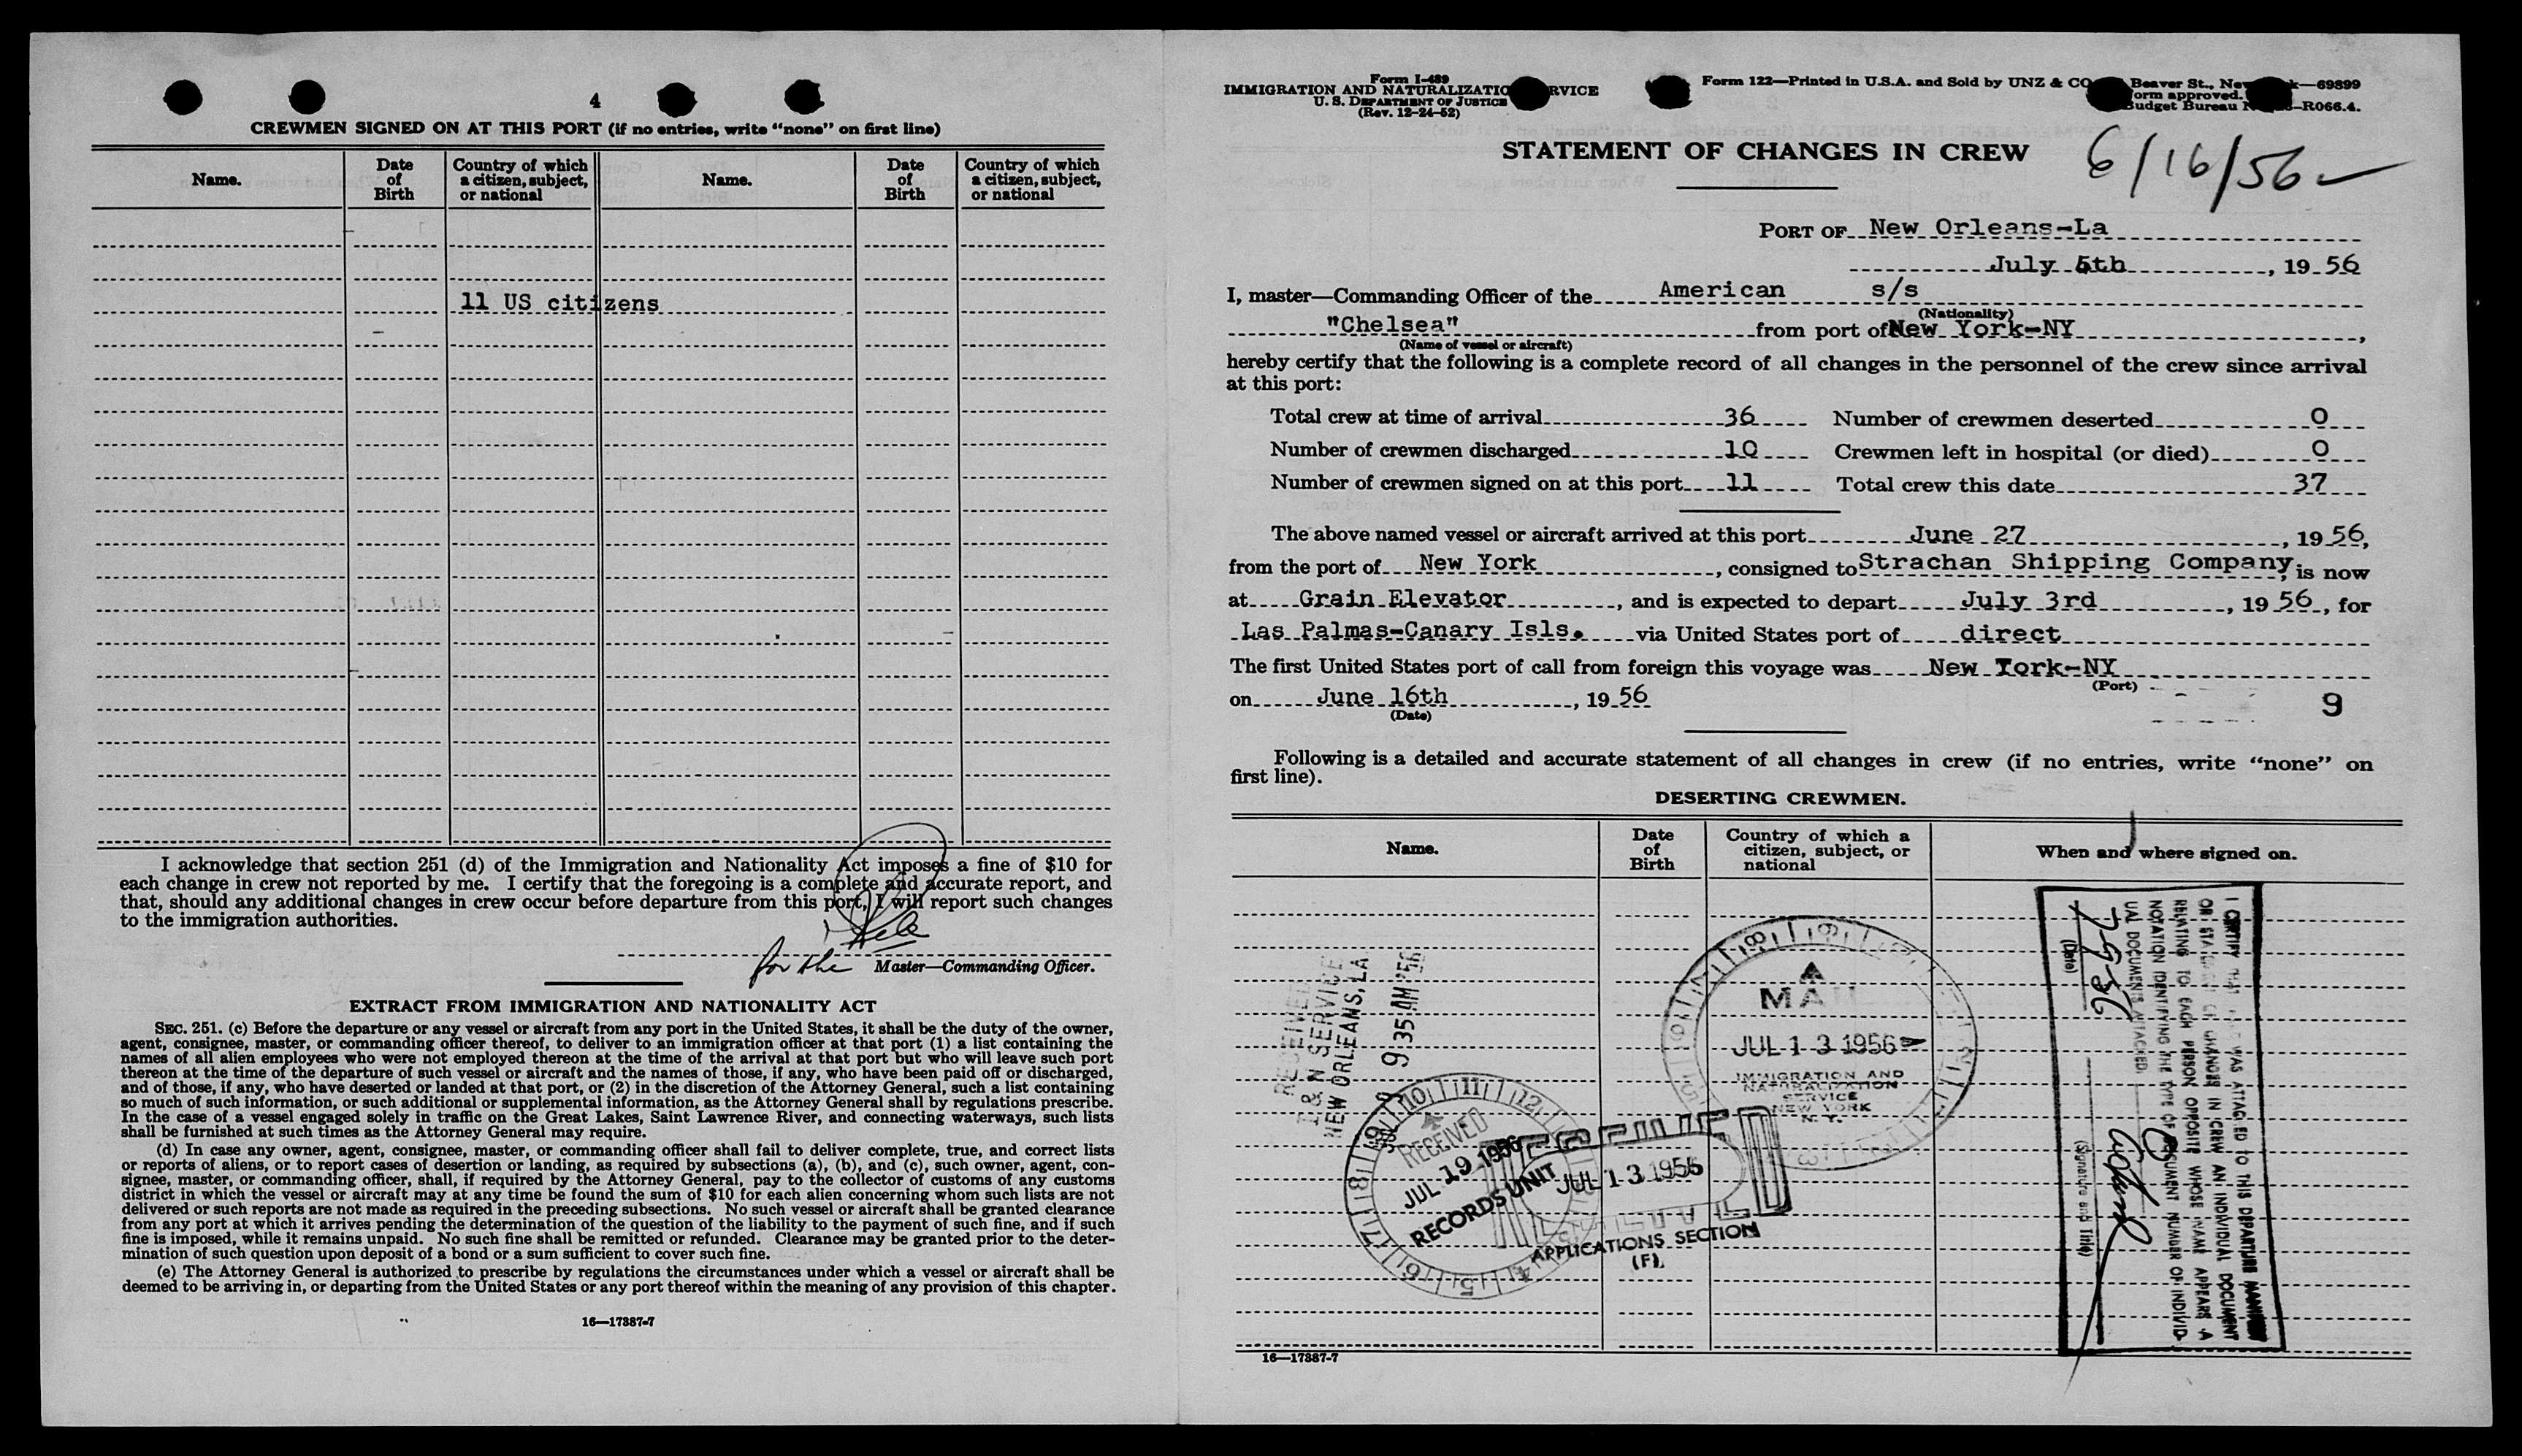 4
CREWMEN SIGNED ON AT THIS PORT (if no entries, write “none” on first line)
Name. Date of Birth Country of which a citizen, subject, or national Name. Date of Birth Country of which a citizen, subject, or national
11 US citizens
I acknowledge that section 251 (d) of the Immigration and Nationality Act imposes a fine of $10 for
each change in crew not reported by me. I certify that the foregoing is a complete and accurate report, and
that, should any additional changes in crew occur before departure from this port, I will report such changes
to the immigration authorities.
for the Master—Commanding Officer.
EXTRACT FROM IMMIGRATION AND NATIONALITY ACT
SEC. 251. (c) Before the departure or any vessel or aircraft from any port in the United States, it shall be the duty of the owner,
agent, consignee, master, or commanding officer thereof, to deliver to an immigration officer at that port (1) a list containing the
names of all alien employees who were not employed thereon at the time of the arrival at that port but who will leave such port
thereon at the time of the departure of such vessel or aircraft and the names of those, if any, who have been paid off or discharged,
and of those, if any, who have deserted or landed at that port, or (2) in the discretion of the Attorney General, such a list containing
so much of such information, or such additional or supplemental information, as the Attorney General shall by regulations prescribe.
In the case of a vessel engaged solely in traffic on the Great Lakes, Saint Lawrence River, and connecting waterways, such lists
shall be furnished at such times as the Attorney General may require.
(d) In case any owner, agent, consignee, master, or commanding officer shall fail to deliver complete, true, and correct lists
or reports of aliens, or to report cases of desertion or landing, as required by subsections (a), (b), and (c), such owner, agent, con-
signee, master, or commanding officer, shall, if required by the Attorney General, pay to the collector of customs of any customs
district in which the vessel or aircraft may at any time be found the sum of $10 for each alien concerning whom such lists are not
delivered or such reports are not made as required in the preceding subsections. No such vessel or aircraft shall be granted clearance
from any port at which it arrives pending the determination of the question of the liability to the payment of such fine, and if such
fine is imposed, while it remains unpaid. No such fine shall be remitted or refunded. Clearance may be granted prior to the deter-
mination of such question upon deposit of a bond or a sum sufficient to cover such fine.
(e) The Attorney General is authorized to prescribe by regulations the circumstances under which a vessel or aircraft shall be
deemed to be arriving in, or departing from the United States or any port thereof within the meaning of any provision of this chapter.
16—17887-7
Form I-489
IMMIGRATION AND NATURALIZATIO RVICE
U. S. DEPARTMENT OF JUSTICE
(Rev. 12-24-52)
Form 122—Printed in U.S.A. and Sold by UNZ & CO Beaver St., New k—69899
orm approved.
Budget Bureau –R066.4.
STATEMENT OF CHANGES IN CREW
6/16/56
PORT OF New Orleans-La
July 5th, 19 56
I, master—Commanding Officer of the American s/s
(Nationality)
"Chelsea" from port of New York-NY,
(Name of vessel or aircraft)
hereby certify that the following is a complete record of all changes in the personnel of the crew since arrival
at this port:
Total crew at time of arrival 36 Number of crewmen deserted 0
Number of crewmen discharged 10 Crewmen left in hospital (or died) 0
Number of crewmen signed on at this port 11 Total crew this date 37
The above named vessel or aircraft arrived at this port June 27, 19 56,
from the port of New York, consigned to Strachan Shipping Company, is now
at Grain Elevator, and is expected to depart July 3rd, 19 56, for
Las Palmas-Canary Isls. via United States port of direct
The first United States port of call from foreign this voyage was New York-NY
(Port)
on June 16th, 19 56
(Date)
9
Following is a detailed and accurate statement of all changes in crew (if no entries, write “none” on
first line).
DESERTING CREWMEN.
Name. Date of Birth Country of which a citizen, subject, or national When and where signed on.
RECEIVED
I & N SERVICE
NEW ORLEANS, LA
9 35 AM '56
MAIL
JUL 13 1956
IMMIGRATION AND
NATURALIZATION
SERVICE
NEW YORK
N. Y.
RECEIVED
JUL 19 1956
RECORDS UNIT
RECEIVED
JUL 13 1956
APPLICATIONS SECTION
(F)
I CERTIFY THAT WAS ATTACHED TO THIS DEPARTURE MANIFEST
OR STATEMENT OF CHANGES IN CREW AN INDIVIDUAL DOCUMENT
RELATING TO EACH PERSON OPPOSITE WHOSE NAME APPEARS A
NOTATION IDENTIFYING THE TYPE OF DOCUMENT NUMBER OF INDIVID-
UAL DOCUMENTS ATTACHED
(Date) (Signature and Title)
16—17887-7